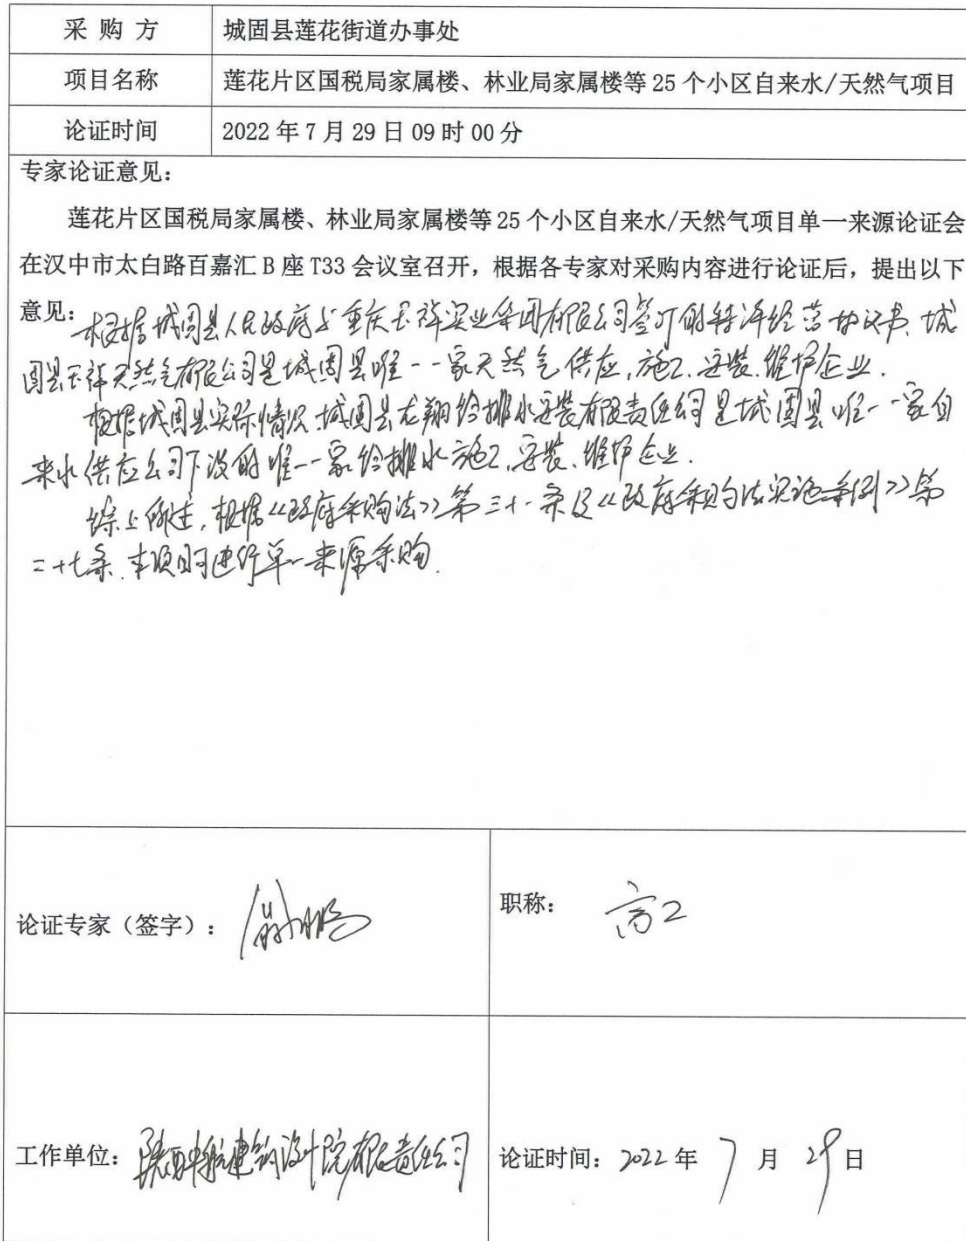 采 购 方 城固县莲花街道办事处
项目名称 莲花片区国税局家属楼、林业局家属楼等 25 个小区自来水/天然气项目
论证时间 2022 年 7 月 29 日 09 时 00 分
专家论证意见：
莲花片区国税局家属楼、林业局家属楼等 25 个小区自来水/天然气项目单一来源论证会
在汉中市太白路百嘉汇 B 座 T33 会议室召开，根据各专家对采购内容进行论证后，提出以下
意见：根据城固县人民政府与重庆玉祥实业集团有限公司签订的特许经营协议书，城
固县玉祥天然气有限公司是城固县唯一一家天然气供应、施工、安装、维护企业.
根据城固县实际情况,城固县龙翔给排水安装有限责任公司是城固县唯一一家自
来水供应公司下设的唯一一家给排水施工、安装、维护企业.
综上所述，根据《政府采购法》第三十一条及《政府采购法实施条例》第
二十七条.本项目可进行单一来源采购.
论证专家（签字）：
职称： 高工
工作单位：陕西中航建筑设计院有限责任公司
论证时间：2022 年 7 月 29 日